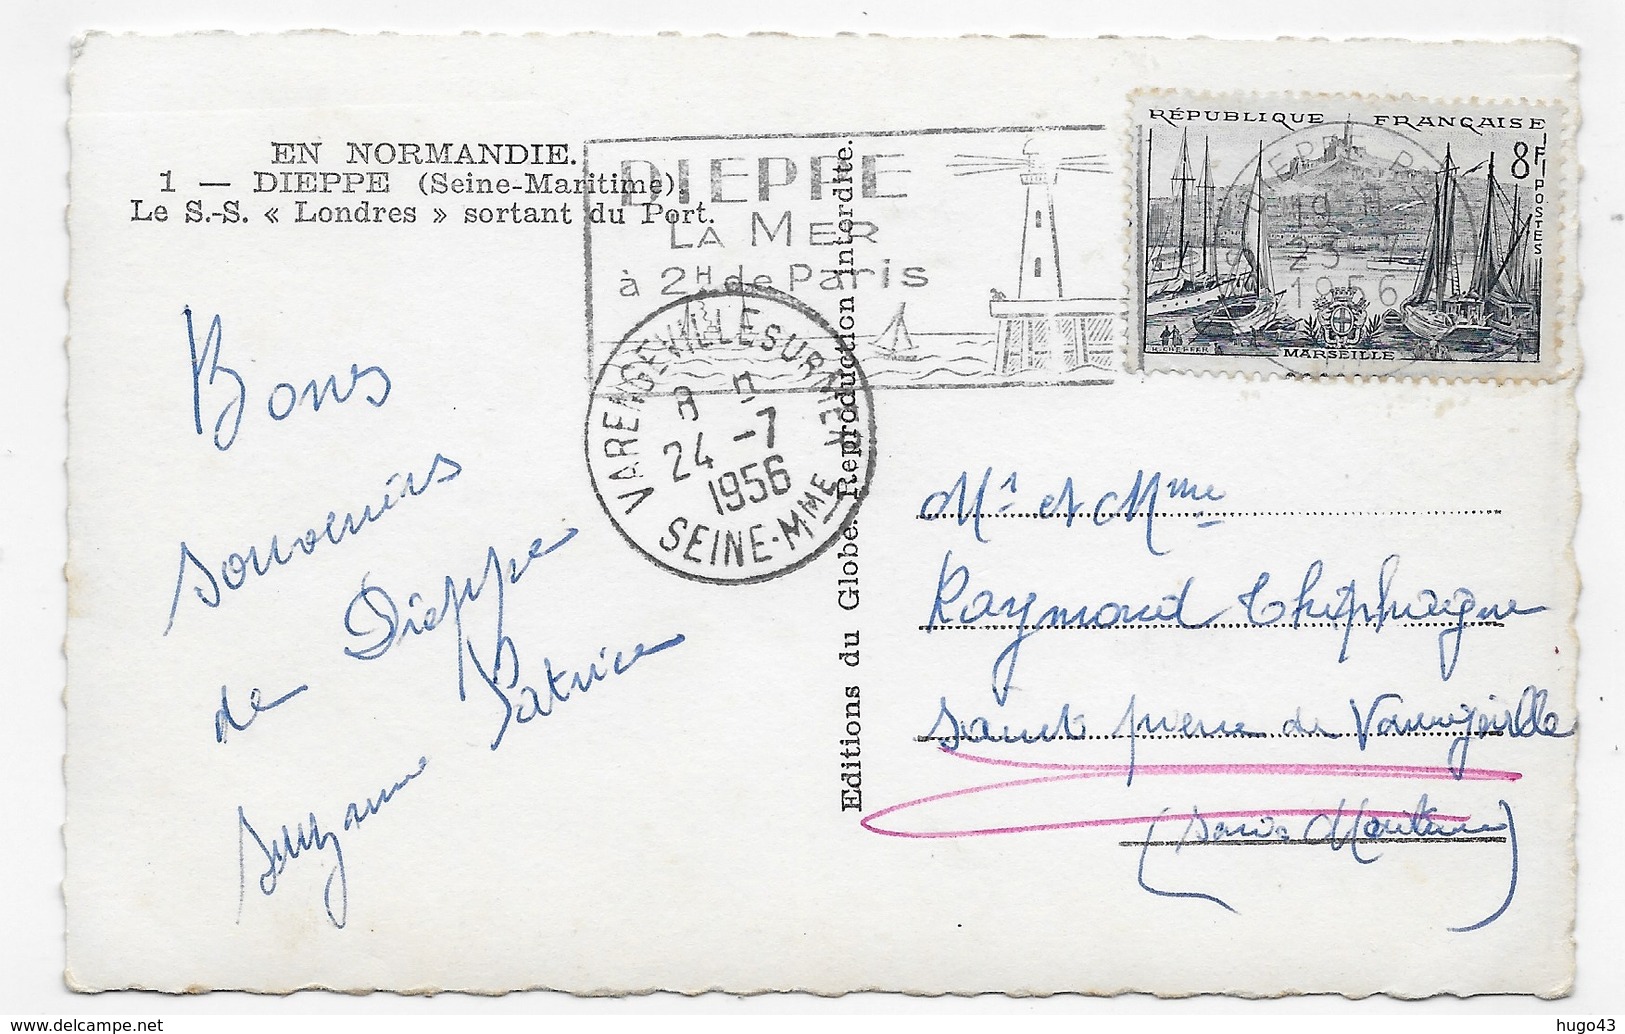 EN NORMANDIE.
1 — DIEPPE (Seine-Maritime)
Le S.-S. « Londres » sortant du Port.
DIEPPE
LA MER
à 2H de Paris
RÉPUBLIQUE FRANÇAISE
8F
POSTES
DIEPPE
19 H
23-7
1956
MARSEILLE
VARENGEVILLE SUR MER
24 -7
1956
SEINE-MME
Editions du Globe. Reproduction interdite.
Bons
souvenirs
de Dieppe
Suzanne Patrice
Mr et Mme
Raymond Thiphaigne
Saint pierre de Varengeville
(Seine Maritime)
hugo43